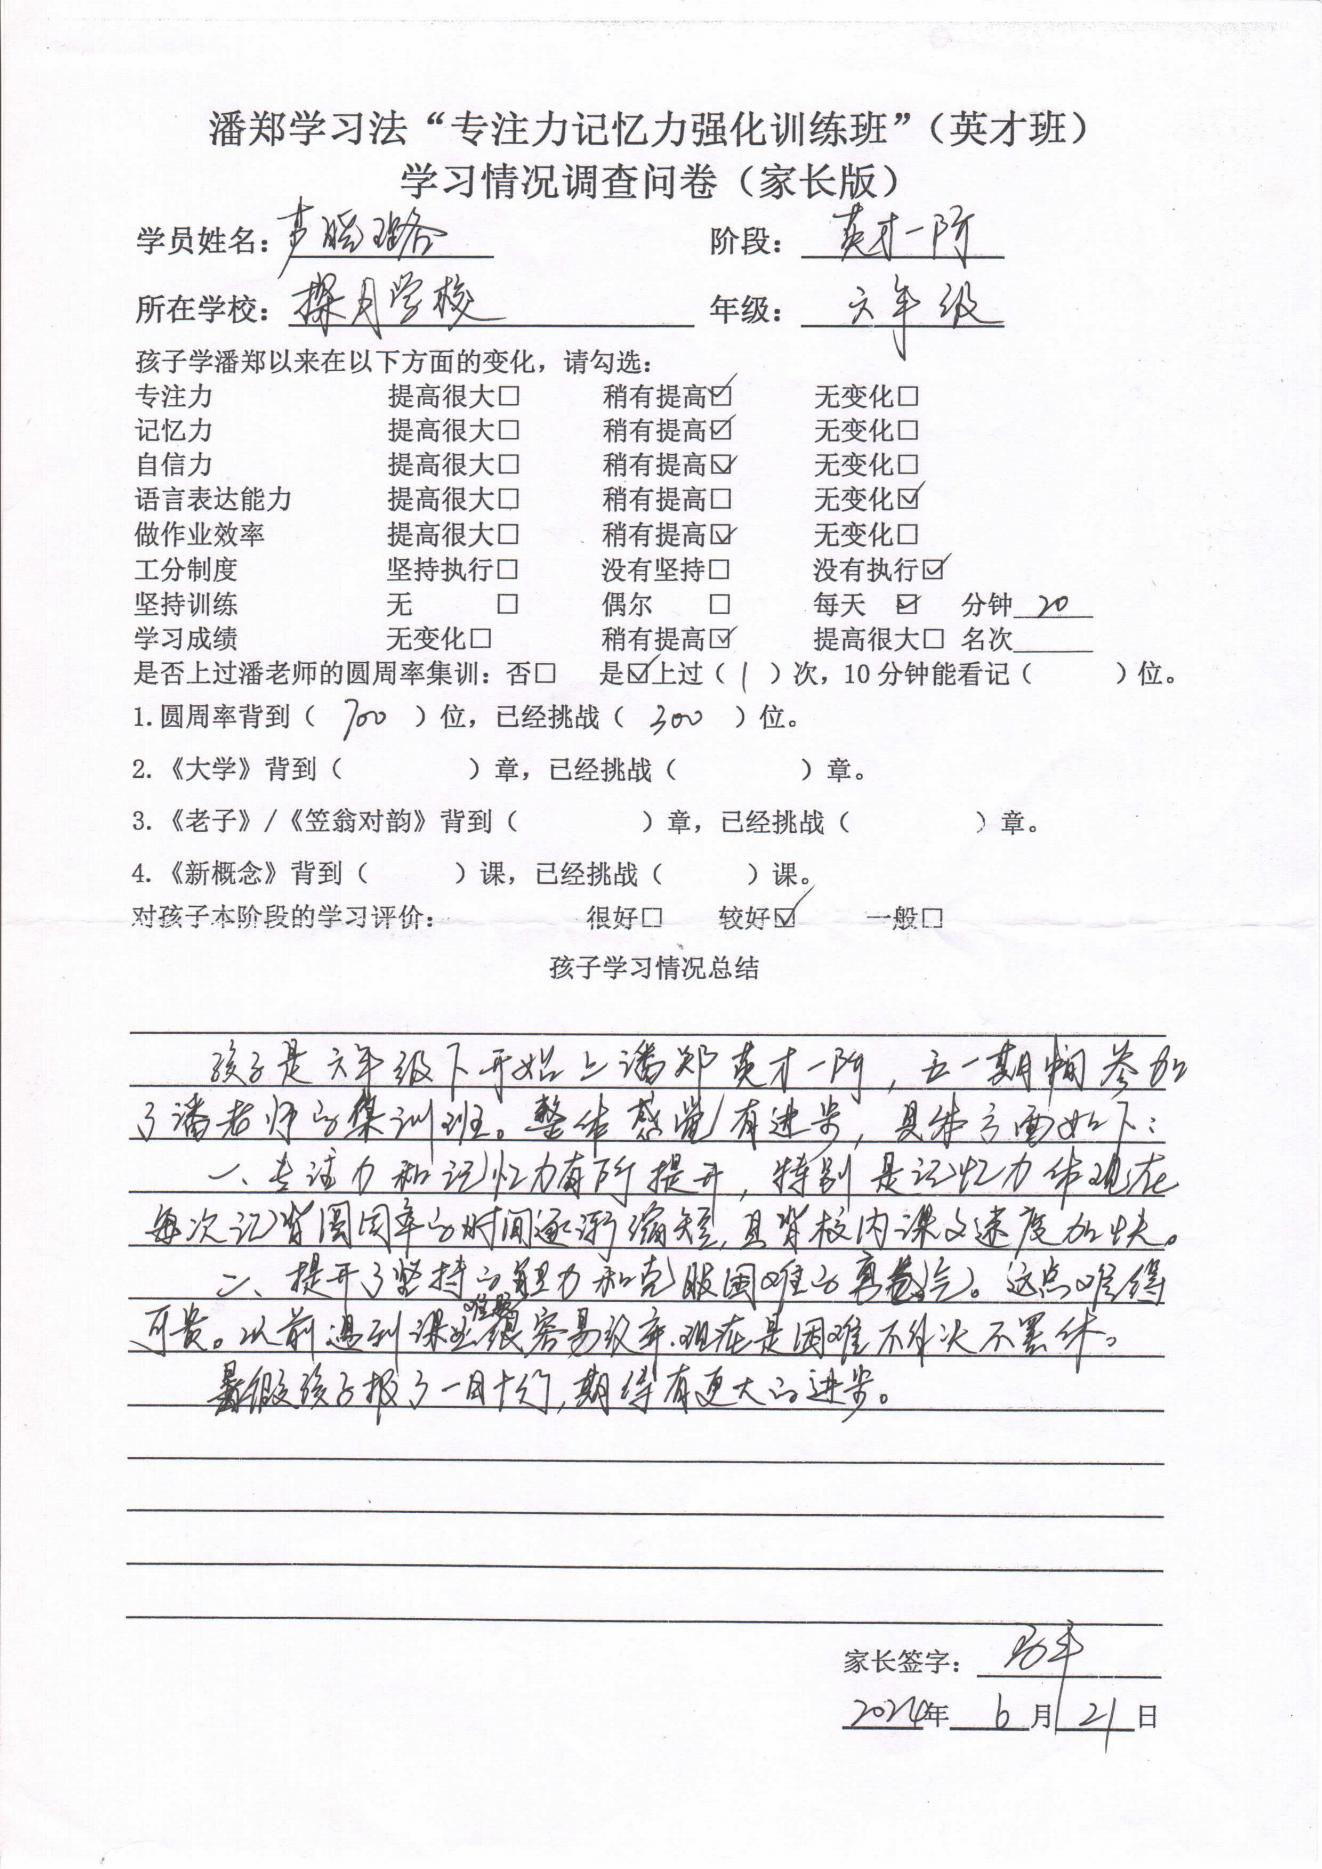 潘郑学习法“专注力记忆力强化训练班”（英才班）
学习情况调查问卷（家长版）
学员姓名： 阶段：英才一阶
所在学校：探月学校 年级：六年级
孩子学潘郑以来在以下方面的变化，请勾选：
专注力 提高很大□ 稍有提高☑ 无变化□
记忆力 提高很大□ 稍有提高☑ 无变化□
自信力 提高很大□ 稍有提高☑ 无变化□
语言表达能力 提高很大□ 稍有提高□ 无变化☑
做作业效率 提高很大□ 稍有提高☑ 无变化□
工分制度 坚持执行□ 没有坚持□ 没有执行☑
坚持训练 无 □ 偶尔 □ 每天 ☑ 分钟20
学习成绩 无变化□ 稍有提高☑ 提高很大□ 名次
是否上过潘老师的圆周率集训：否□ 是☑上过（1）次，10分钟能看记（ ）位。
1.圆周率背到（700）位，已经挑战（300）位。
2.《大学》背到（ ）章，已经挑战（ ）章。
3.《老子》/《笠翁对韵》背到（ ）章，已经挑战（ ）章。
4.《新概念》背到（ ）课，已经挑战（ ）课。
对孩子本阶段的学习评价： 很好□ 较好☑ 一般□
孩子学习情况总结
孩子是六年级下开始上潘郑英才一阶，五一期间参加
了潘老师的集训班。整体感觉有进步，具体方面如下：
一、专注力和记忆力有所提升，特别是记忆力体现在
每次记背圆周率的时间逐渐缩短，且背校内课文速度加快。
二、提升了坚持的能力和克服困难的勇气。这点难得
可贵。以前遇到课业难题很容易放弃，现在是困难不解决不罢休。
暑假孩子报了一目十行，期待有更大的进步。
家长签字：
2024年6月21日